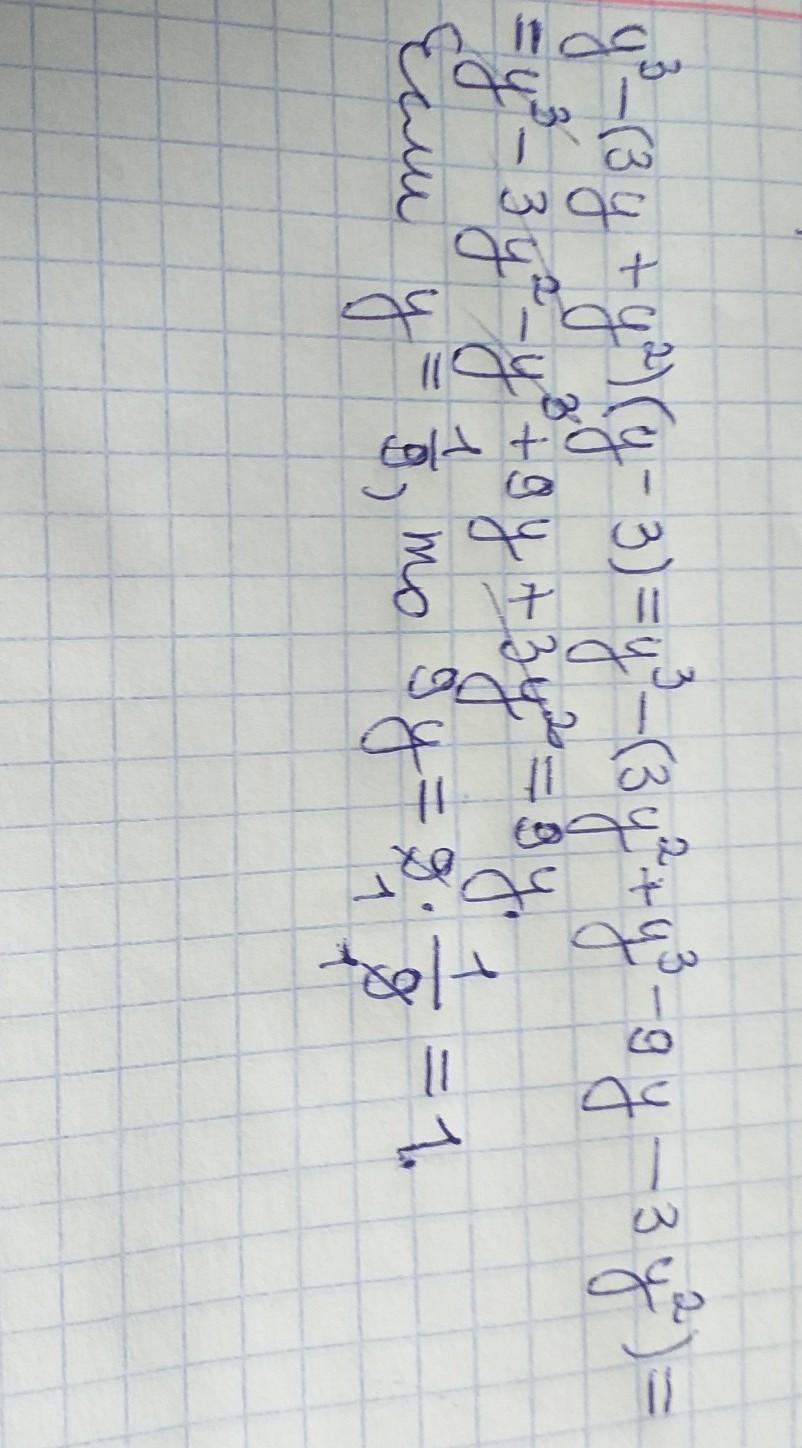 y³ - (3y + y²)(y - 3) = y³ - (3y² + y³ - 9y - 3y²) =
= y³ - 3y² - y³ + 9y + 3y² = 9y.
Если y = 1/9, то 9y = 9 · 1/9 = 1.